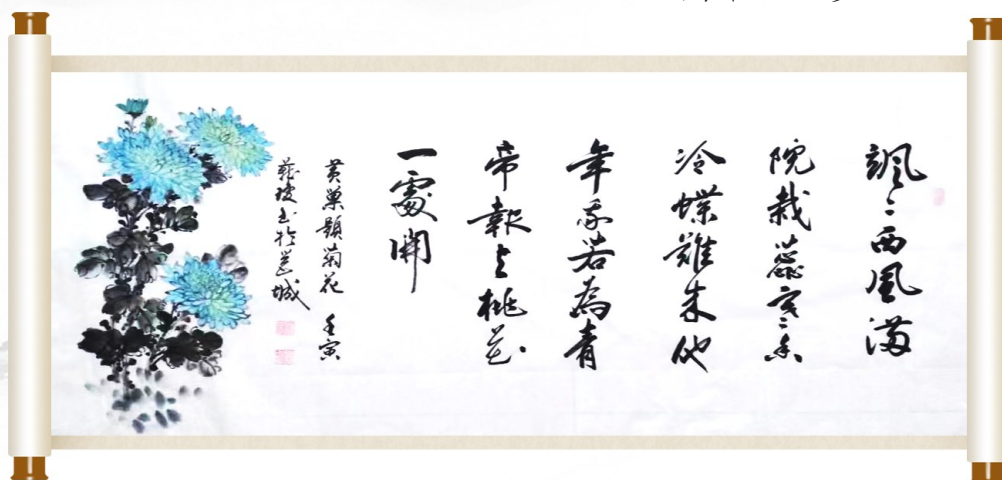 颯々西風滿
院栽蕊寒香
冷蝶難來他
年我若為青
帝報与桃花
一處開
黃巢題菊花 壬寅
书於城